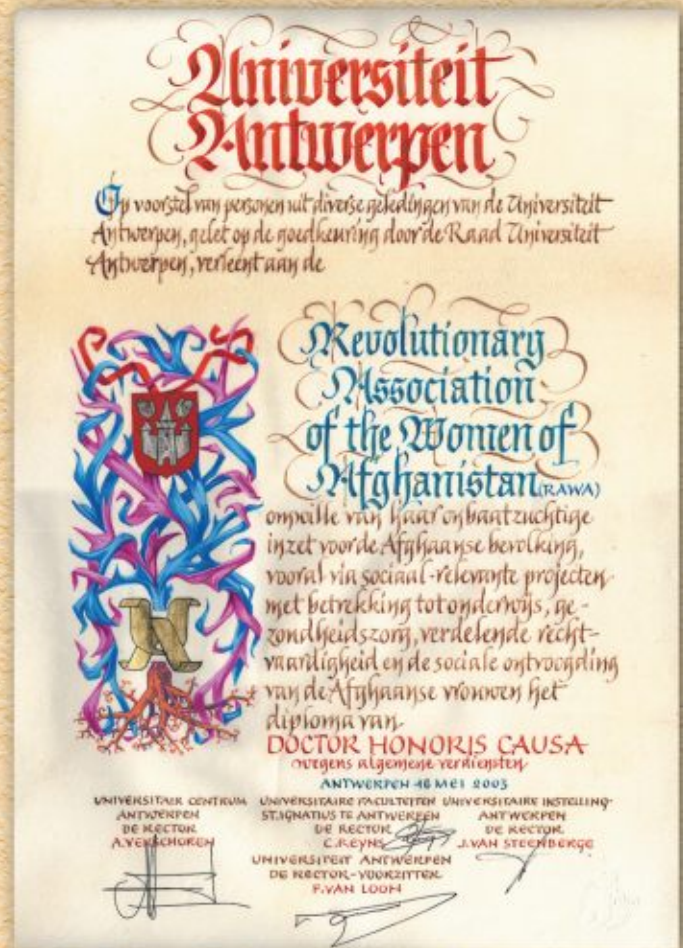 Universiteit
Antwerpen
Op voorstel van personen uit diverse geledingen van de Universiteit
Antwerpen, gelet op de goedkeuring door de Raad Universiteit
Antwerpen, verleent aan de
Revolutionary
Association
of the Women of
Afghanistan (RAWA)
omwille van haar onbaatzuchtige
inzet voor de Afghaanse bevolking,
vooral via sociaal-relevante projecten
met betrekking tot onderwijs, ge-
zondheidszorg, verdelende recht-
vaardigheid en de sociale ontvoogding
van de Afghaanse vrouwen het
diploma van
DOCTOR HONORIS CAUSA
wegens algemene verdiensten
ANTWERPEN 16 MEI 2003
UNIVERSITAIR CENTRUM UNIVERSITAIRE FACULTEITEN UNIVERSITAIRE INSTELLING
ANTWERPEN ST. IGNATIUS TE ANTWERPEN ANTWERPEN
DE RECTOR DE RECTOR DE RECTOR
A. VERSCHOREN C. REYNS J. VAN STEENBERGE
UNIVERSITEIT ANTWERPEN
DE RECTOR-VOORZITTER
F. VAN LOON